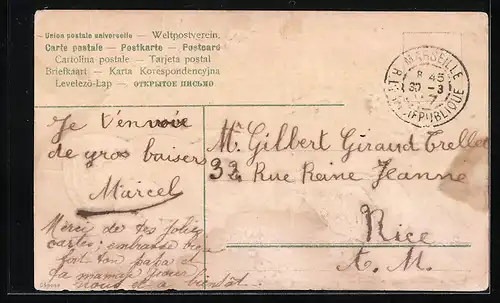 Union postale universelle — Weltpostverein.
Carte postale — Postkarte — Postcard
Cartolina postale — Tarjeta postal
Briefkaart — Karta Korespondencyjna
Levelező-Lap — ОТКРЫТОЕ ПИСЬМО
MARSEILLE
8 45
30 -3
RÉPUBLIQUE
Je t'envoie
de gros baisers
Marcel
Merci de tes jolies
cartes; embrasse bien
fort ton papa et
ta maman pour
nous et à bientôt.
Mr Gilbert Giraud
32 Rue Reine Jeanne
Nice
A. M.